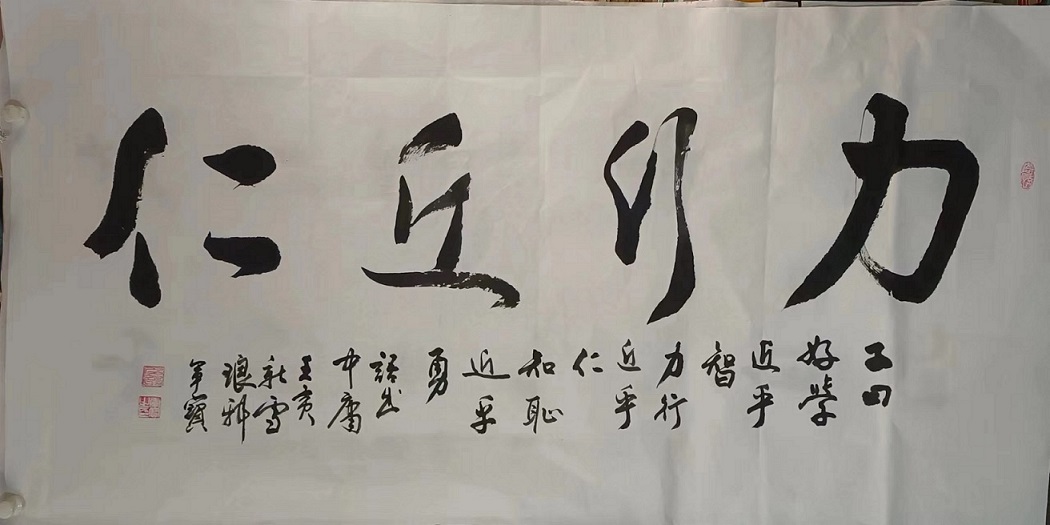 力行近仁
子曰
好學
近乎
智
力行
近乎
仁
知耻
近乎
勇
語出
中庸
壬寅
新雪
琅邪